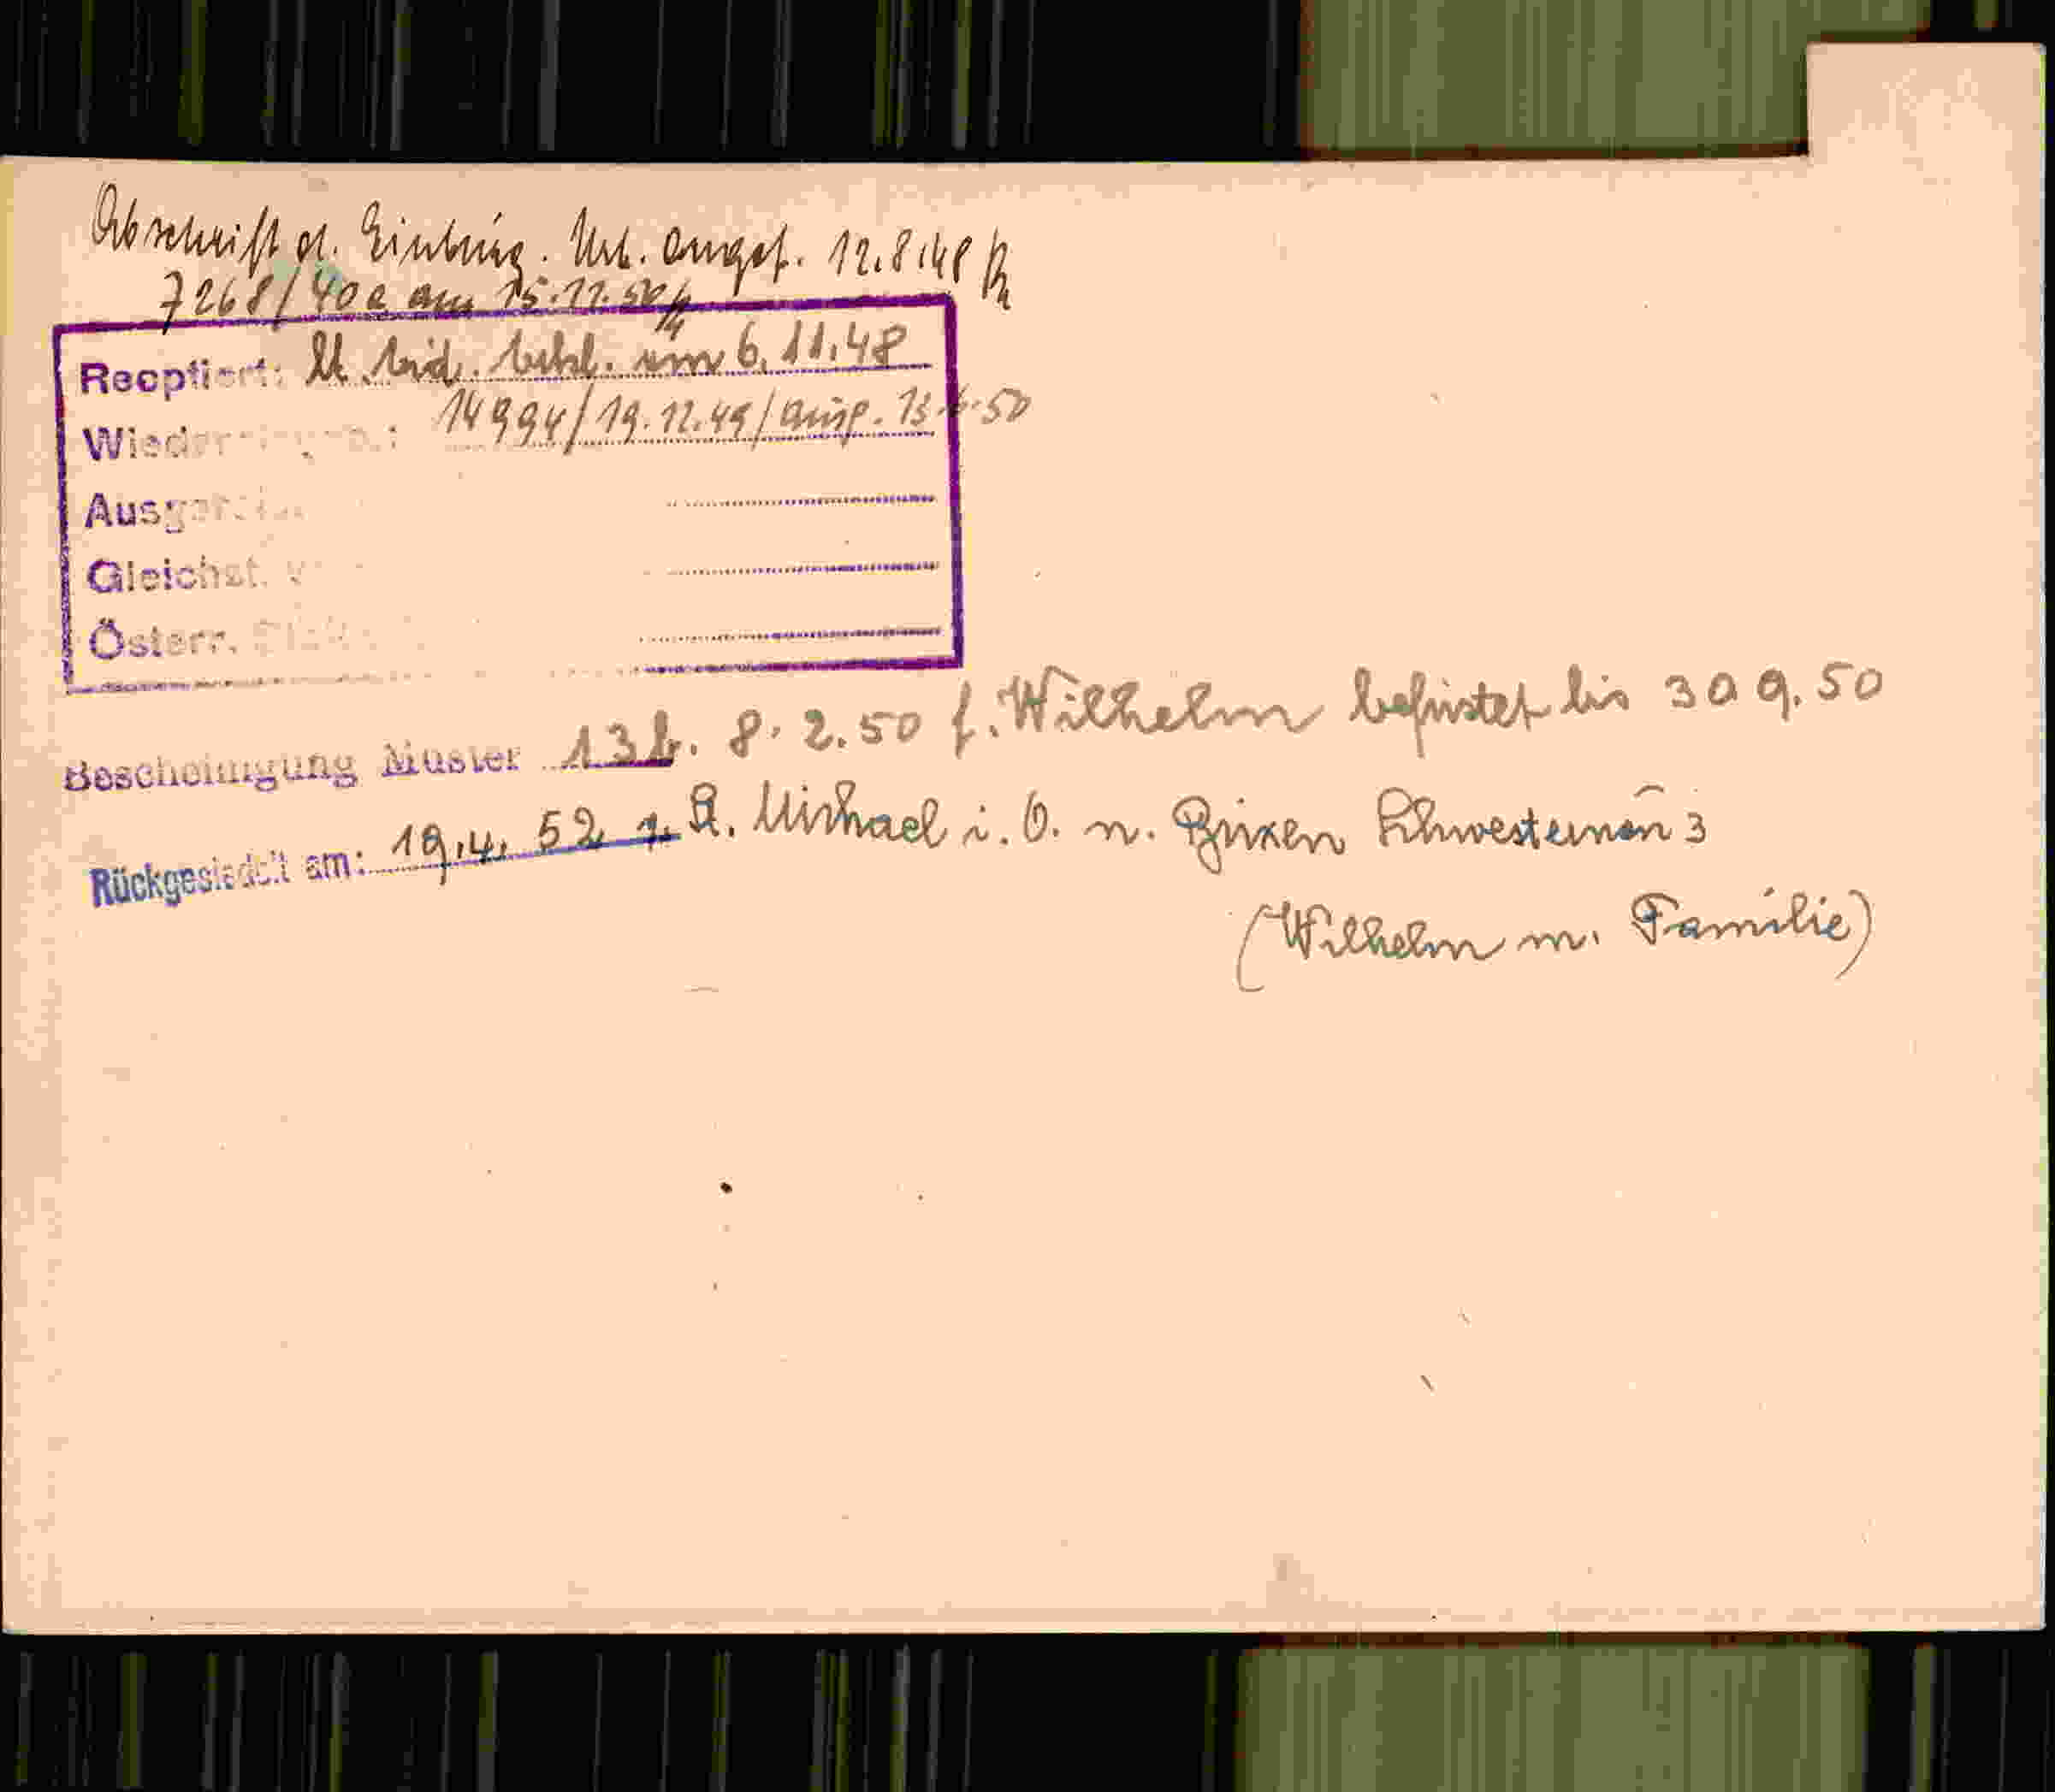 Abschrift d. Einbürg. Urk. angef. 12.8.48
7268/40 a am 15.11.50
Reoptiert: am 6.11.48
14994/19.12.49/ausg. 13.6.50
Gleichst.
Österr.
Bescheinigung Muster 13b. 8.2.50 f. Wilhelm befristet bis 30 9.50
Rückgesiedelt am: 19.4.52 n. St. Michael i. O. n. Brixen
(Wilhelm m. Familie)